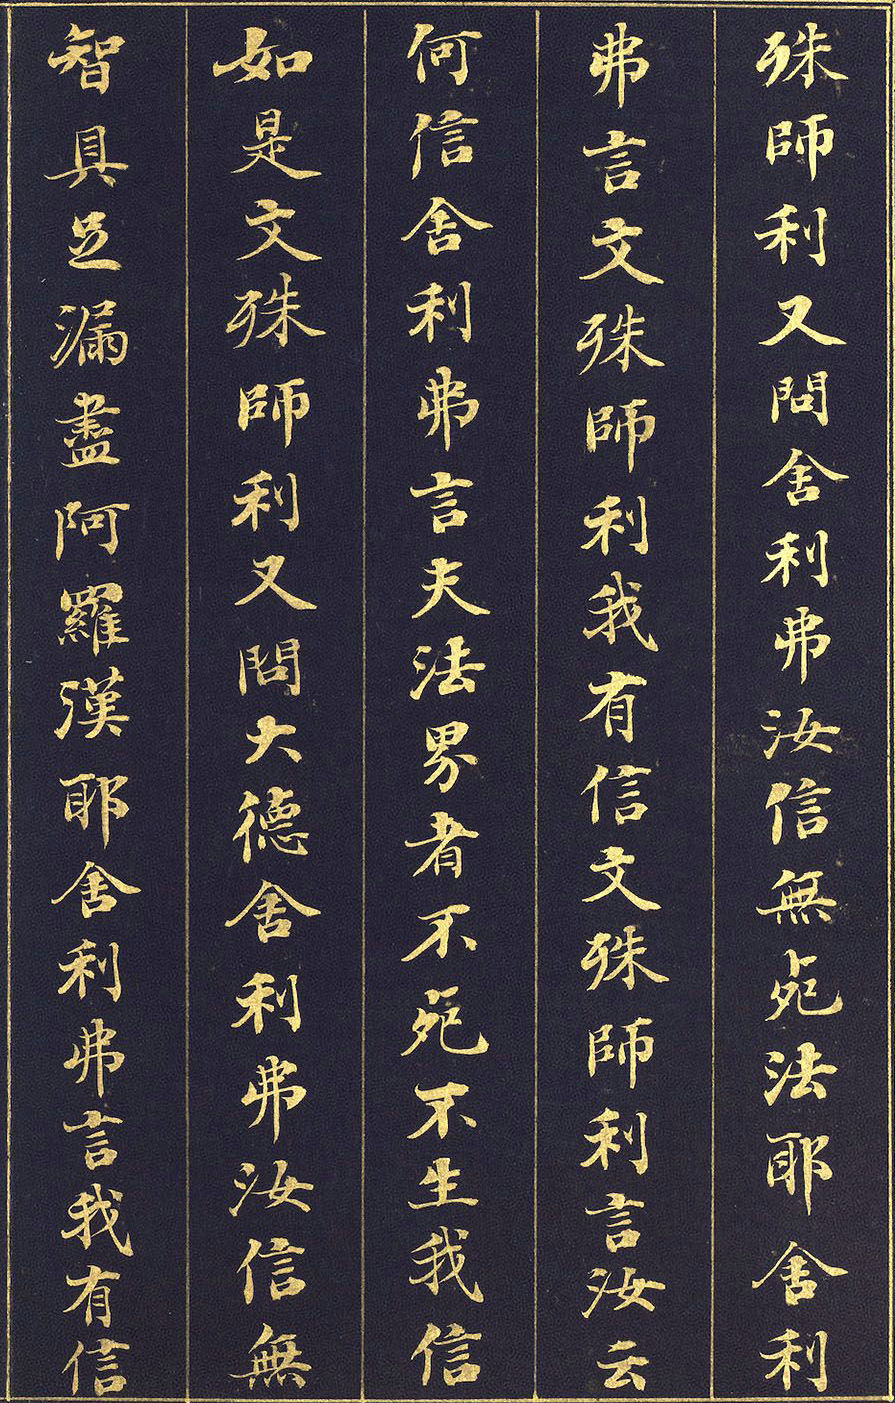 殊師利又問舍利弗汝信無死法耶舍利
弗言文殊師利我有信文殊師利言汝云
何信舍利弗言夫法界者不死不生我信
如是文殊師利又問大德舍利弗汝信無
智具足漏盡阿羅漢耶舍利弗言我有信